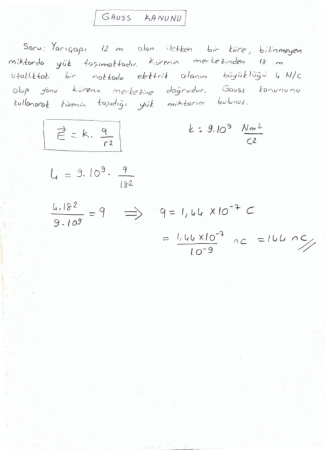 GAUSS KANUNU
Soru: Yarıçapı 12 m olan iletken bir küre, bilinmeyen
miktarda yük taşımaktadır. Kürenin merkezinden 18 m
uzaklıktaki bir noktada elektrik alanın büyüklüğü 4 N/C
olup yönü kürenin merkezine doğrudur. Gauss kanununu
kullanarak kürenin taşıdığı yük miktarını bulunuz.
E = k. q/r² k = 9.10⁹ Nm²/C²
4 = 9.10⁹ . q/18²
4.18²/9.10⁹ = q ⟹ q = 1,44 x 10⁻⁷ C
= 1,44 x 10⁻⁷/10⁻⁹ nC = 144 nC